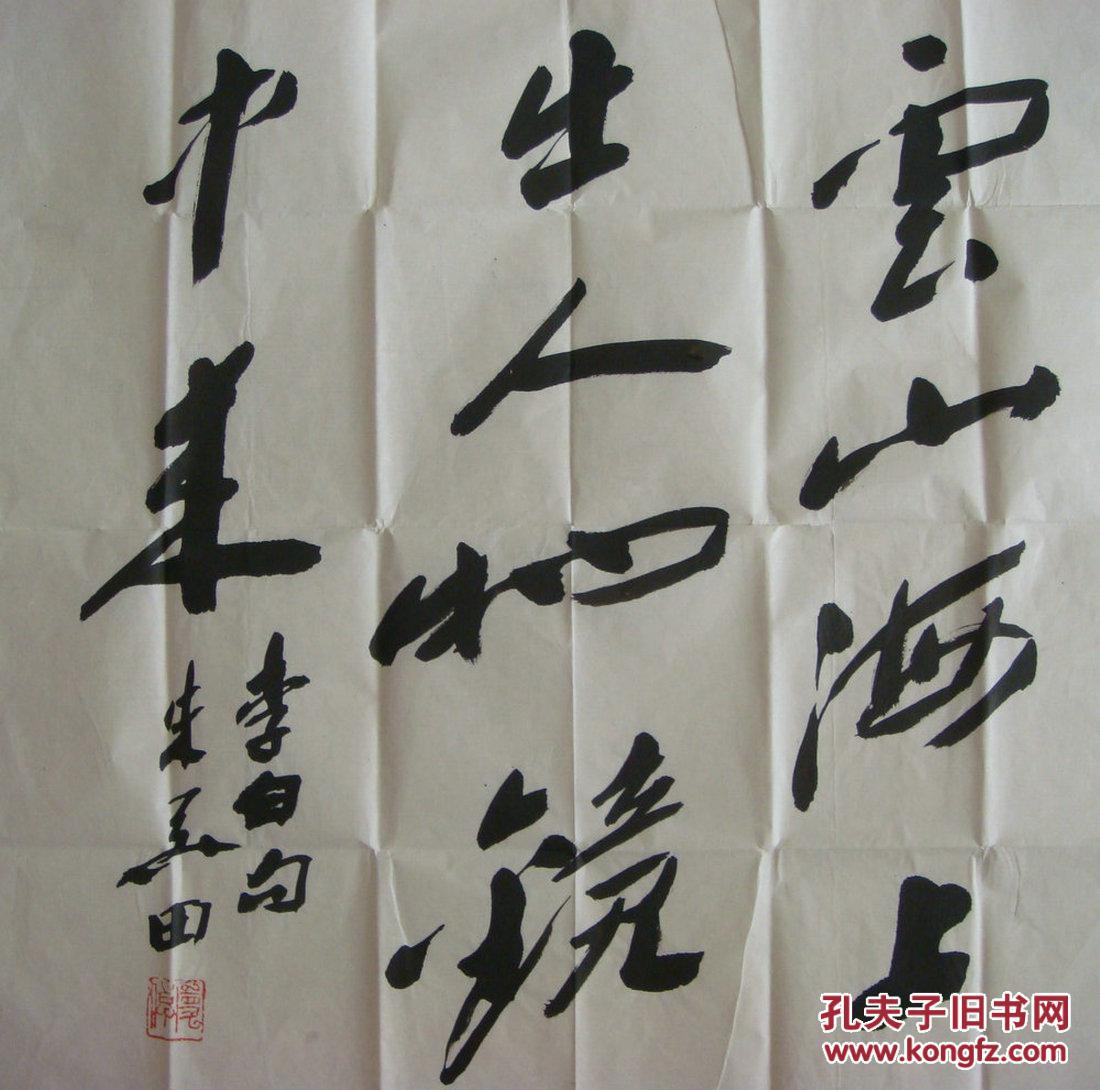 雲山海上
出人物鏡
中来
李白句
朱美田
孔夫子旧书网
www.kongfz.com